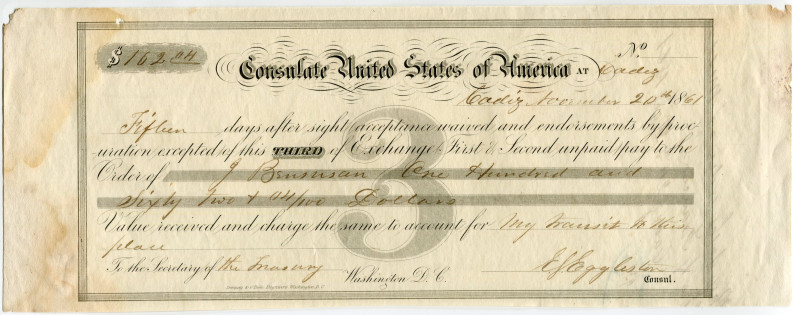 $ 162.04
No
Consulate United States of America AT Cadiz
Cadiz November 20th 1861
Fifteen days after sight (acceptance waived and endorsements by proc-
uration excepted) of this THIRD of Exchange (First & Second unpaid) pay to the
Order of J Bensusan One Hundred and
Sixty two & 04/100 Dollars
Value received and charge the same to account for My transit to this
place
To the Secretary of the Treasury Washington D. C. E S Eggleston
Consul.
3